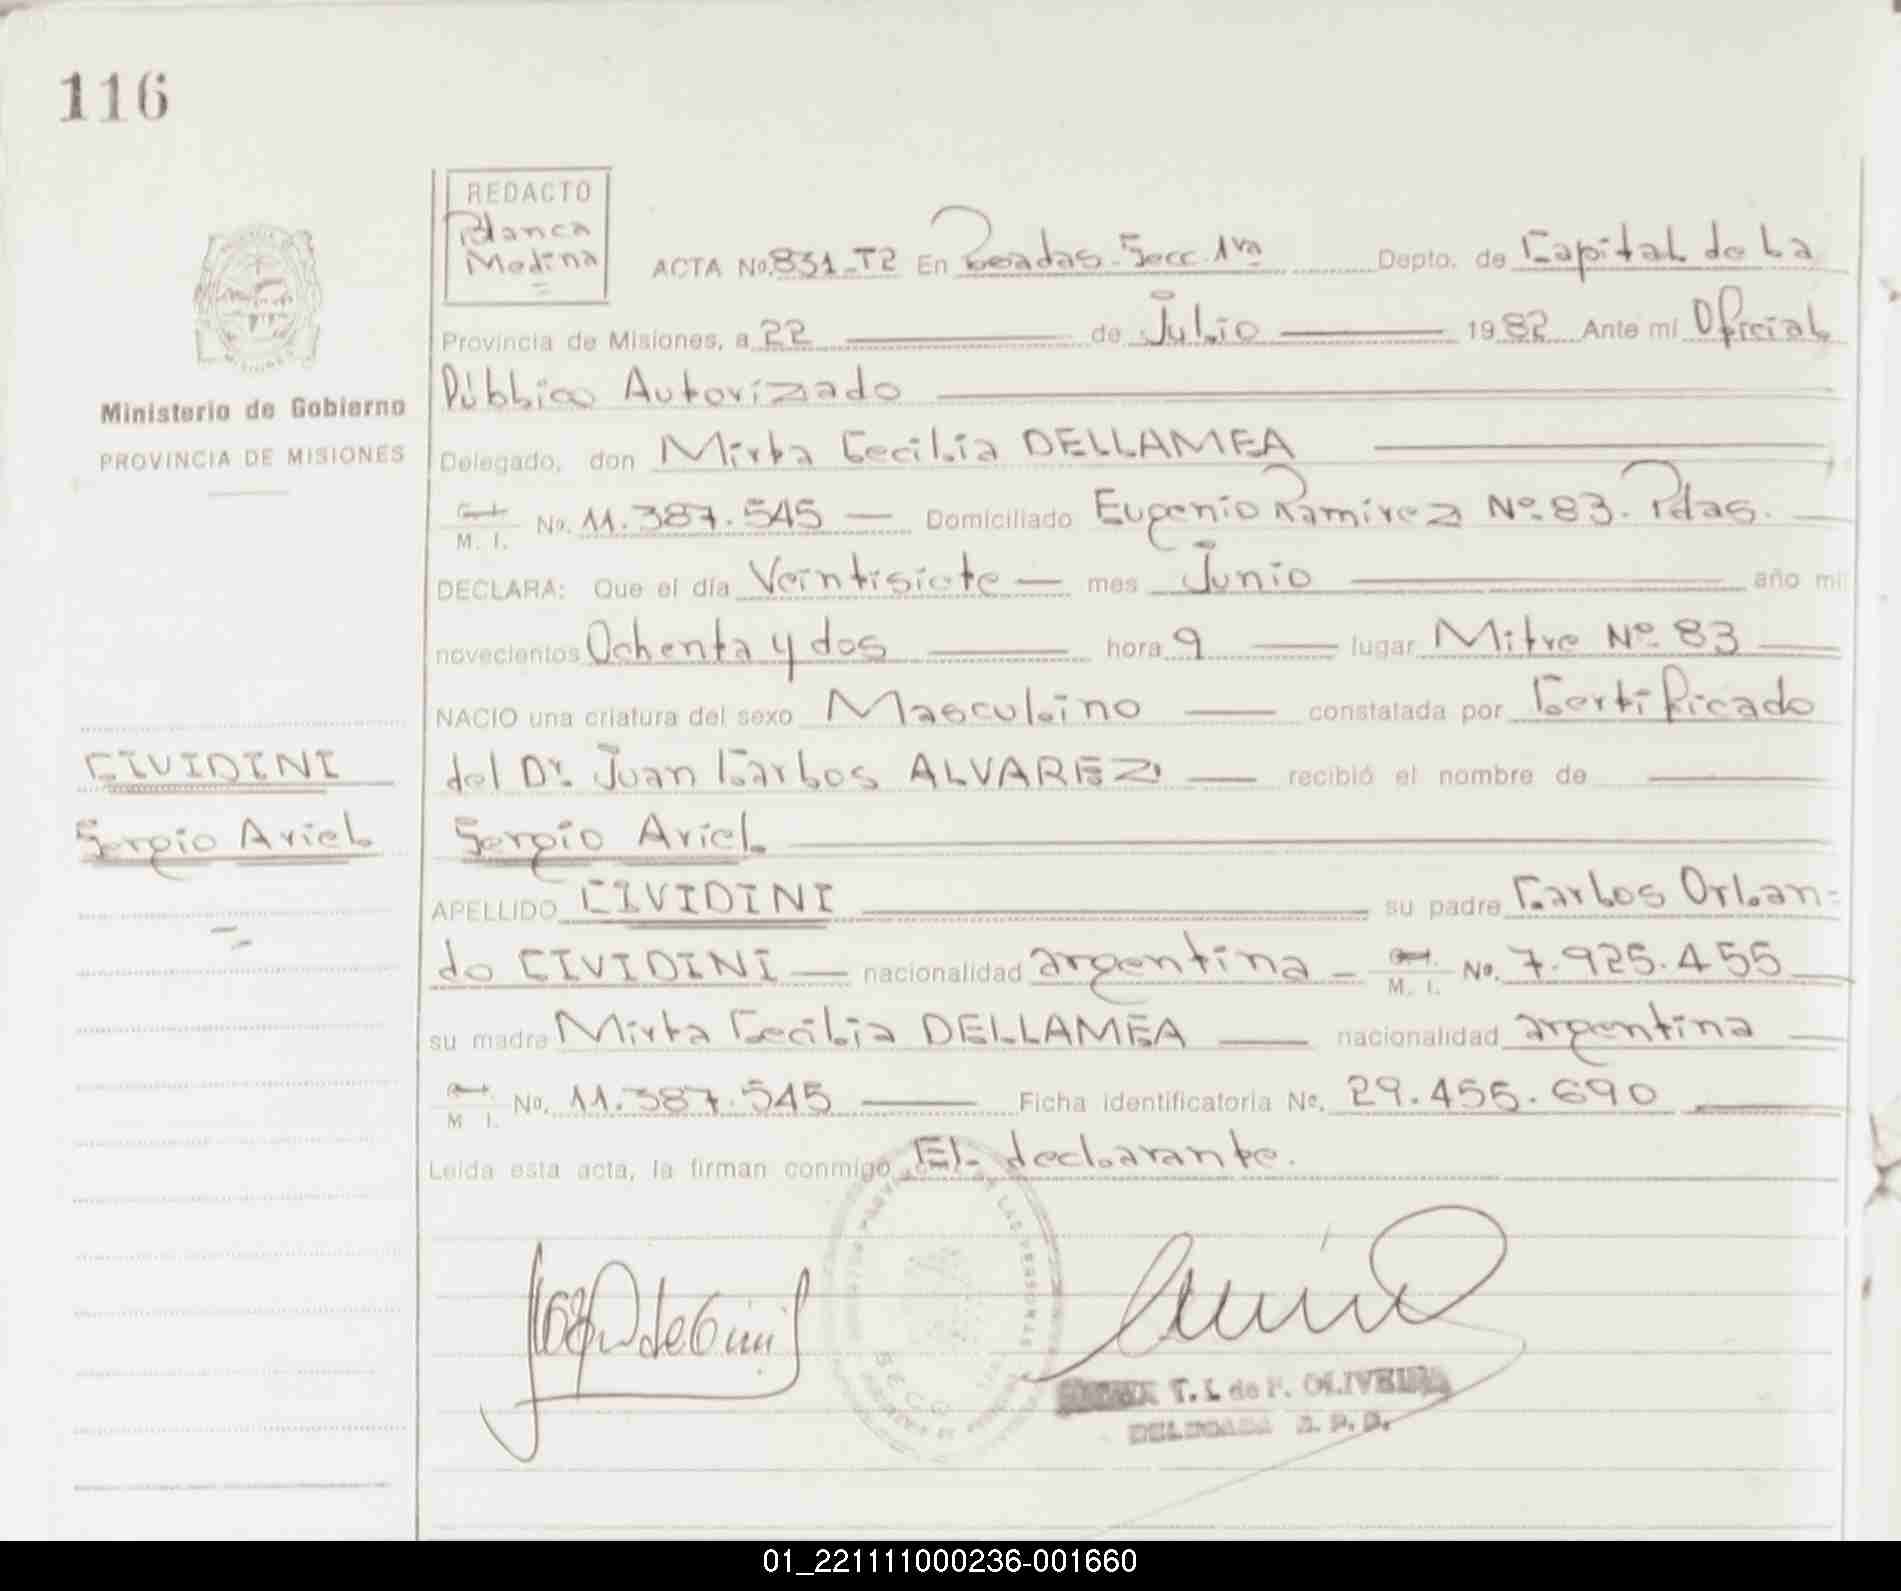 116
REDACTO
Blanca
Medina
ACTA No. 831-T2 En Posadas-Secc. 1ra Depto. de Capital de La
Provincia de Misiones, a 22 de Julio 1982 Ante mi Oficial
Público Autorizado
Ministerio de Gobierno
PROVINCIA DE MISIONES
Delegado, don Mirta Cecilia DELLAMEA
M. I. No. 11.387.545 Domiciliado Eugenio Ramirez Nº 83. Pdas.
DECLARA: Que el día Veintisiete mes Junio año mil
novecientos Ochenta y dos hora 9 lugar Mitre Nº 83
NACIO una criatura del sexo Masculino constatada por Certificado
del Dr. Juan Carlos ALVAREZ recibió el nombre de
Sergio Ariel
CIVIDINI
Sergio Ariel
APELLIDO CIVIDINI su padre Carlos Orlan-
do CIVIDINI nacionalidad argentina M. I. No. 7.925.455
su madre Mirta Cecilia DELLAMEA nacionalidad argentina
M I. No. 11.387.545 Ficha identificatoria No. 29.455.690
Leída esta acta, la firman conmigo El declarante.
T. I. de F. OLIVEIRA
DELEGADA
01_221111000236-001660